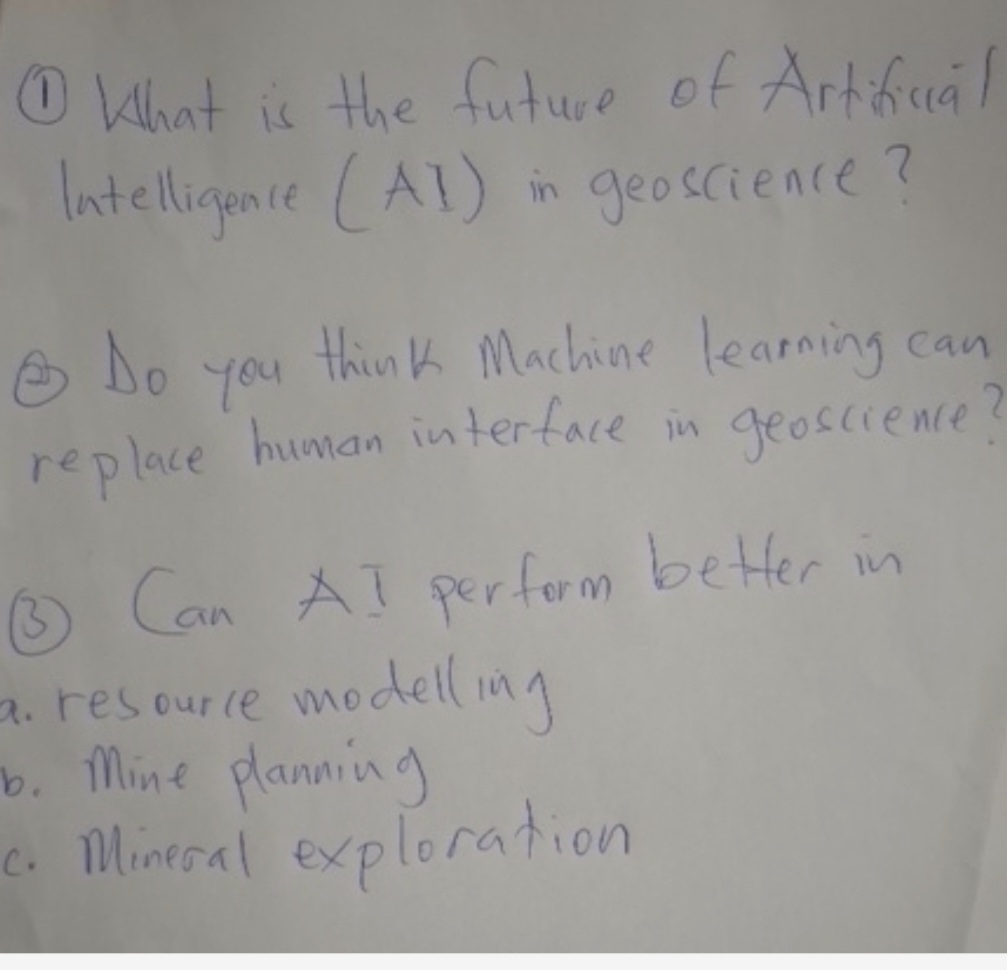 ① What is the future of Artificial
Intelligence (AI) in geoscience?
② Do you think Machine learning can
replace human interface in geoscience?
③ Can AI perform better in
a. resource modelling
b. Mine planning
c. Mineral exploration